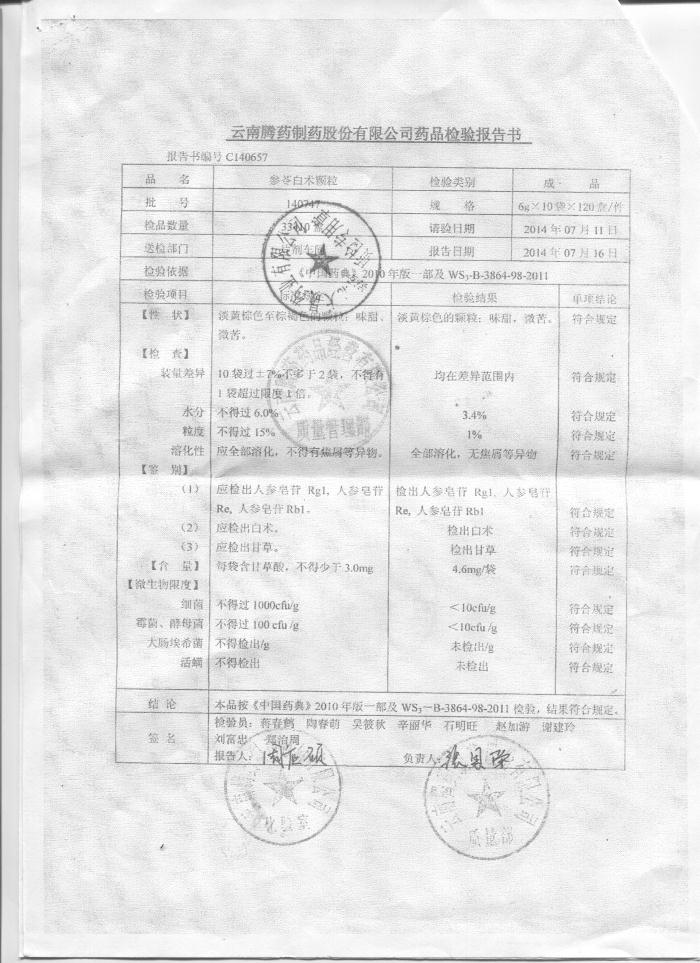 云南腾药制药股份有限公司药品检验报告书
报告书编号 C140657
品 名 参苓白术颗粒 检验类别 成 品
批 号 140747 规 格 6g×10袋×120盒/件
检品数量 请验日期 2014年07月11日
送检部门 报告日期 2014年07月16日
检验依据 《中国药典》2010年版一部及WS₃-B-3864-98-2011
检验项目 检验结果 单项结论
【性 状】 淡黄棕色至棕褐色的颗粒；味甜、 淡黄棕色的颗粒；味甜，微苦。 符合规定
微苦。
【检 查】
装量差异 10袋过±7%不多于2袋，不得有 均在差异范围内 符合规定
1袋超过限度1倍。
水分 不得过6.0% 3.4% 符合规定
粒度 不得过15% 1% 符合规定
溶化性 应全部溶化，不得有焦屑等异物。 全部溶化，无焦屑等异物 符合规定
【鉴 别】
（1） 应检出人参皂苷 Rg1，人参皂苷 检出人参皂苷 Rg1、人参皂苷
Re, 人参皂苷Rb1。 Re, 人参皂苷Rb1 符合规定
（2） 应检出白术。 检出白术 符合规定
（3） 应检出甘草。 检出甘草 符合规定
【含 量】 每袋含甘草酸，不得少于3.0mg 4.6mg/袋 符合规定
【微生物限度】
细菌 不得过1000cfu/g ＜10cfu/g 符合规定
霉菌、酵母菌 不得过100 cfu /g ＜10cfu /g 符合规定
大肠埃希菌 不得检出/g 未检出/g 符合规定
活螨 不得检出 未检出 符合规定
结 论 本品按《中国药典》2010年版一部及WS₃－B-3864-98-2011检验，结果符合规定。
签 名 检验员：蒋春鹤 陶春萌 吴筱秋 辛丽华 石明旺 赵加游 谢建玲
刘富忠 郑治周
报告人： 负责人：
质量管理部
质量部